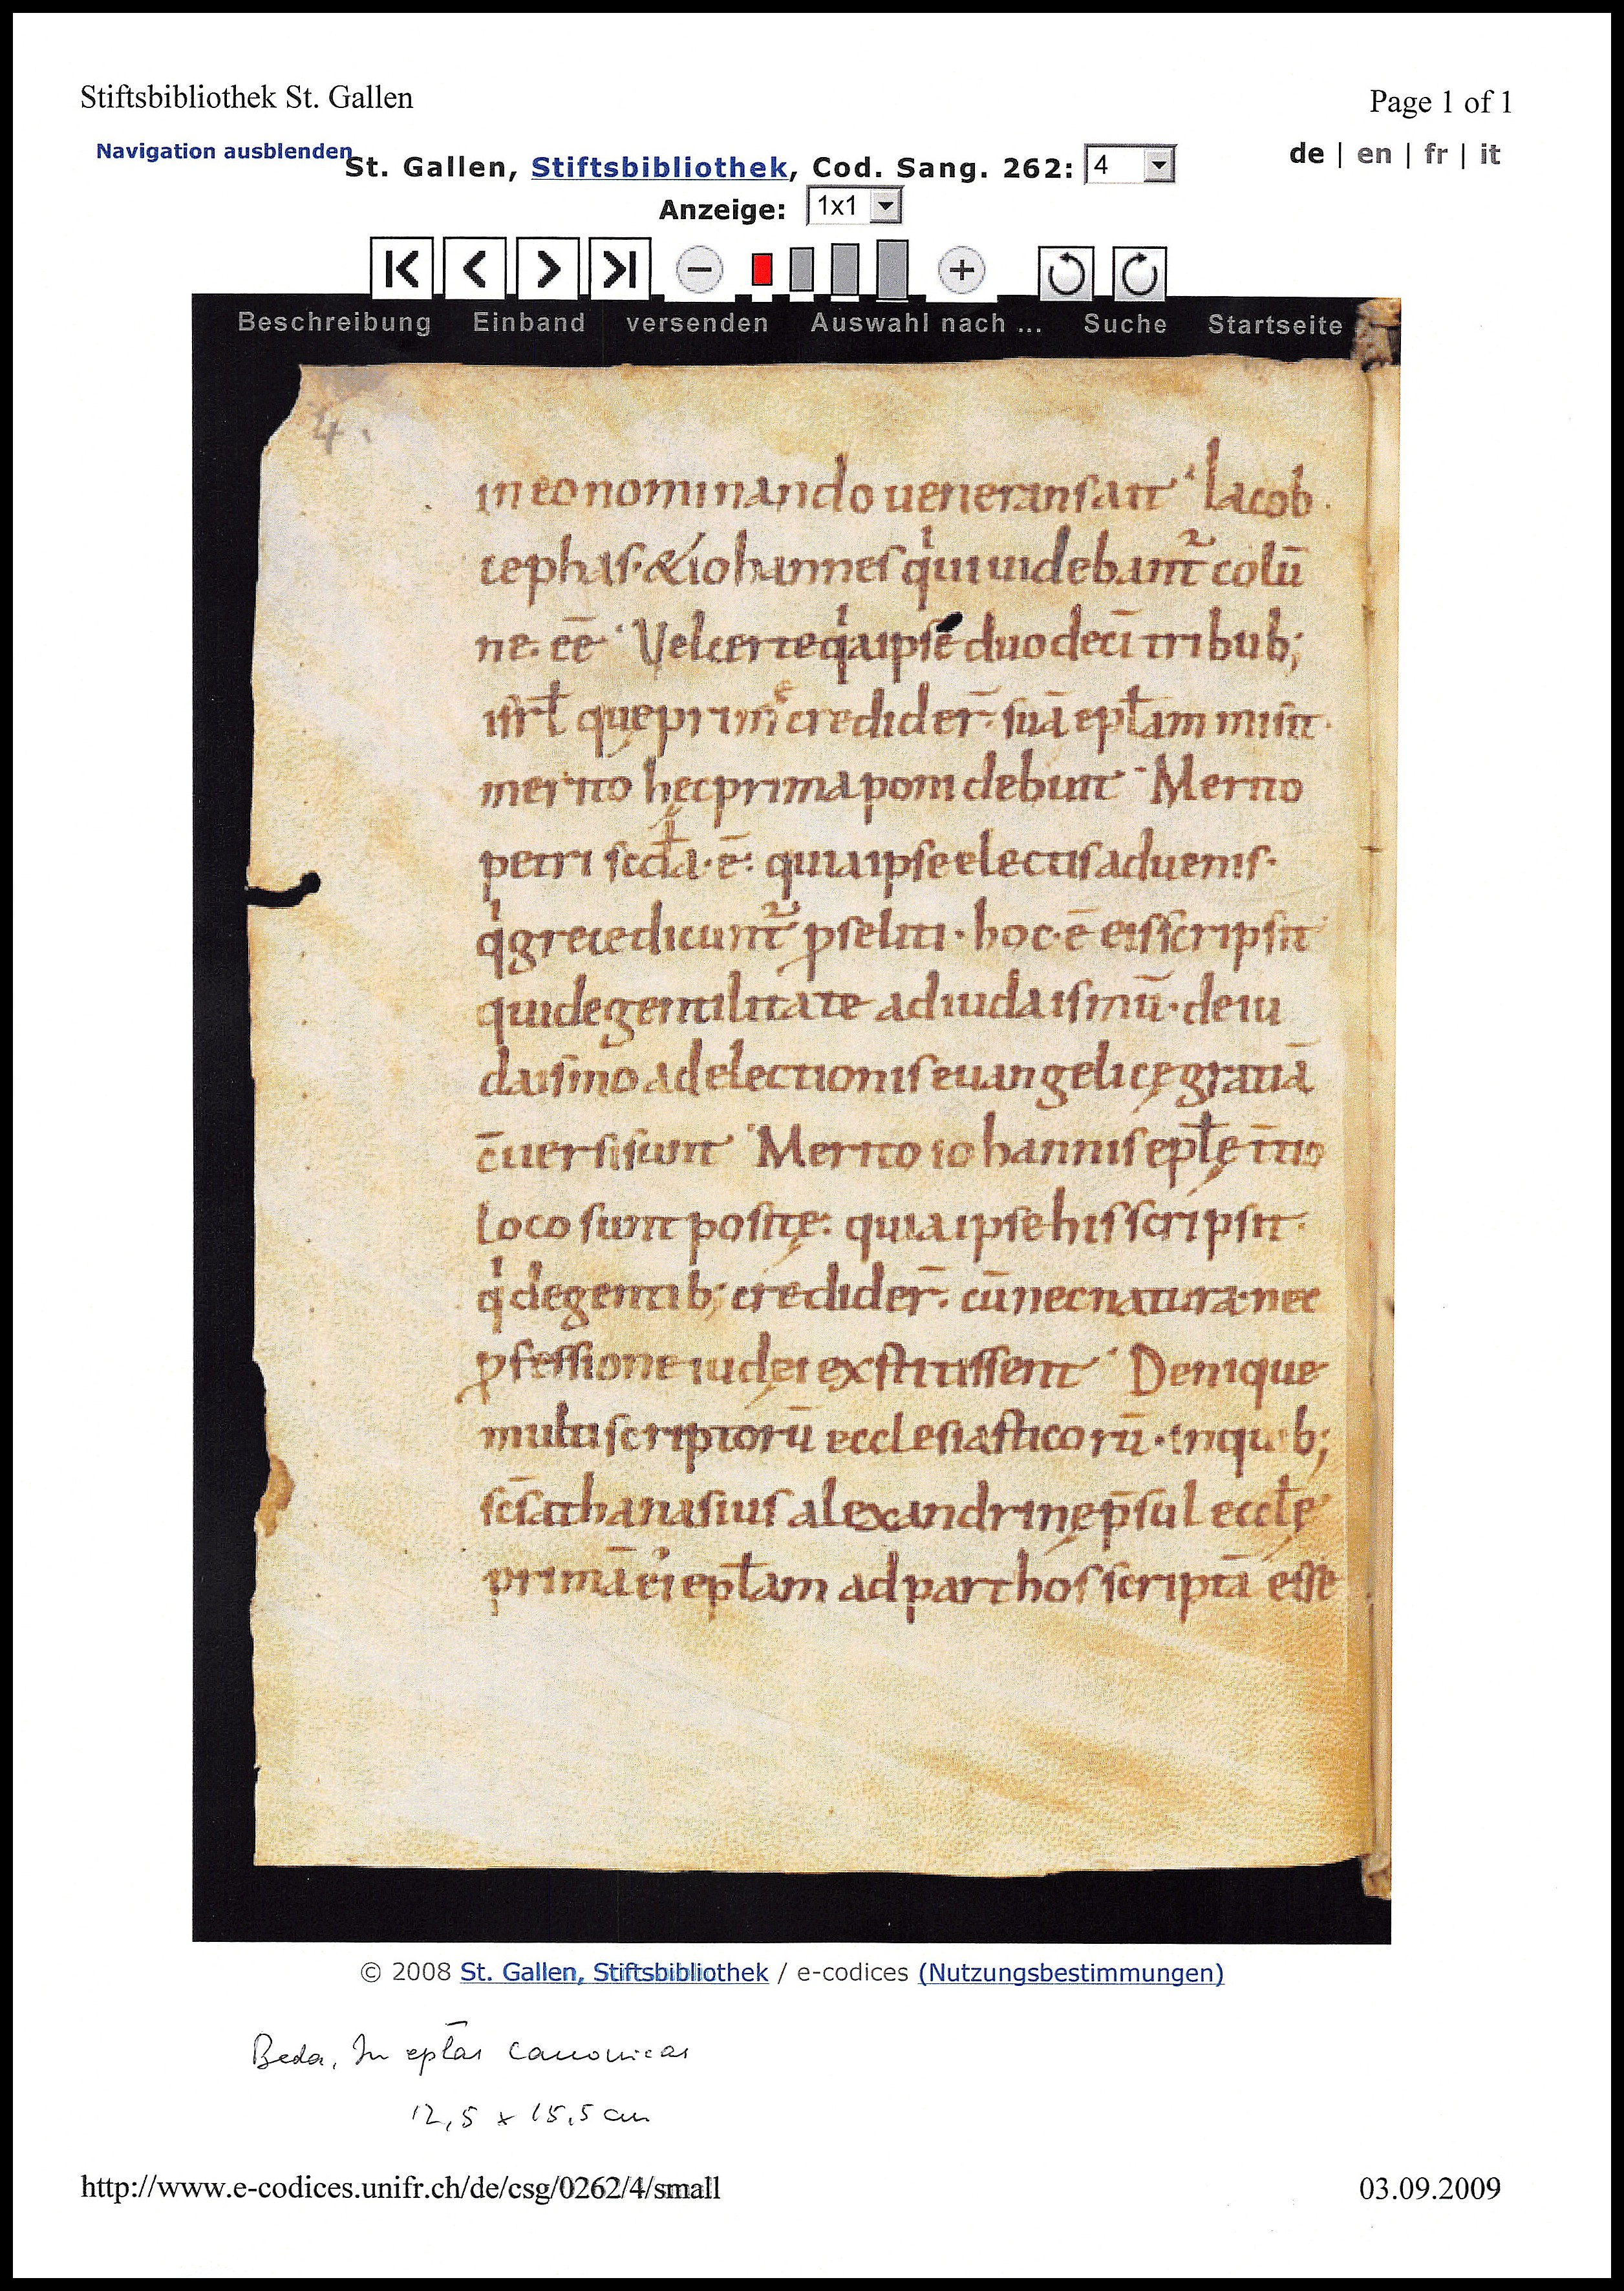 Stiftsbibliothek St. Gallen
Page 1 of 1
Navigation ausblenden
St. Gallen, Stiftsbibliothek, Cod. Sang. 262: 4
de | en | fr | it
Anzeige: 1x1
Beschreibung Einband versenden Auswahl nach ... Suche Startseite
4.
in eo nominando uenerans ait Iacob.
cephas · & iohannes qui uidebant᷑ colū
ne · eē · Vel certe q̍a ipsé duodecī tribub;
isrł quę primͨ̄ credider̄ · suā epłam misit ·
merito hęc prima poni debuit · Merito
petri scd̄a · ē · quia ipse electis aduenis ·
q̍ grece dicunt᷑ ꝓseliti · hoc · ē eis scripsit
qui de gentilitate ad iudaismū · de iu
daismo ad electionis euangelicę gratiā
c̄uersi sunt · Merito iohannis epłę t̄tio
loco sunt positę · quia ipse his scripsit ·
q̍ de gentib; credider̄ · cū nec natura · nec
ꝓfessione iudęi exstitissent · Denique
multi scriptorū ecclesiasticorū · in quib;
sc̄s athanasius alexandrinę p̄sul eccłę
primā ei᾽ epłam ad parthos scriptā esse
© 2008 St. Gallen, Stiftsbibliothek / e-codices (Nutzungsbestimmungen)
Beda, In epłas canonicas
12,5 x 15,5 cm
http://www.e-codices.unifr.ch/de/csg/0262/4/small
03.09.2009